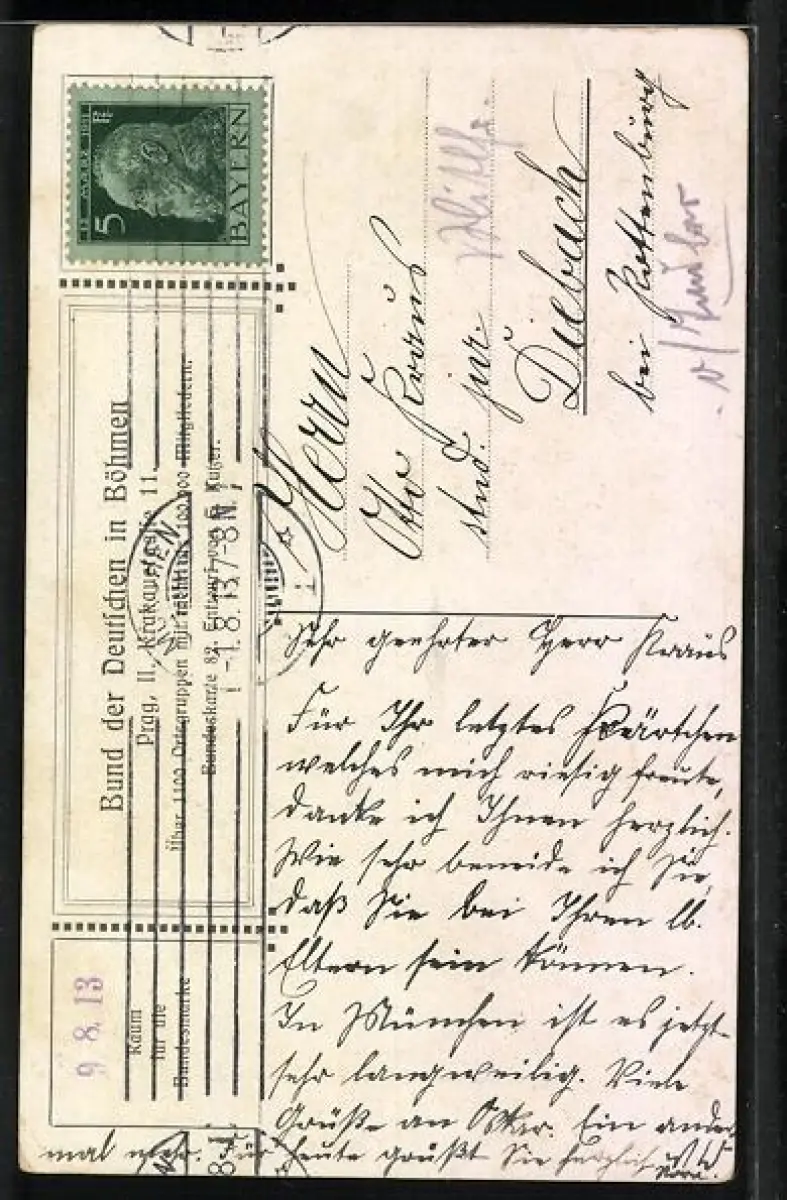 5
BAYERN
Bund der Deutschen in Böhmen
Prag, II., Krakauergasse 11.
Über 1100 Ortsgruppen mit 100.000 Mitgliedern.
Bundeskarte 82. Entwurf von
MÜNCHEN
-1.8.13. 7-8 N.
1
Raum
für die
Bundesmarke
9 8. 13
Herrn
Otto Kraus
stud. jur.
Diebach
bei Rottenburg
Sehr geehrter Herr Kraus
Für Ihr letztes Kärtchen
welches mich riesig freute,
danke ich Ihnen herzlich.
Wie sehr beneide ich Sie,
daß Sie bei Ihren lb.
Eltern sein können.
In München ist es jetzt
sehr langweilig. Viele
Grüße an Oskar. Ein ander
mal mehr. Für heute grüßt Sie herzlich